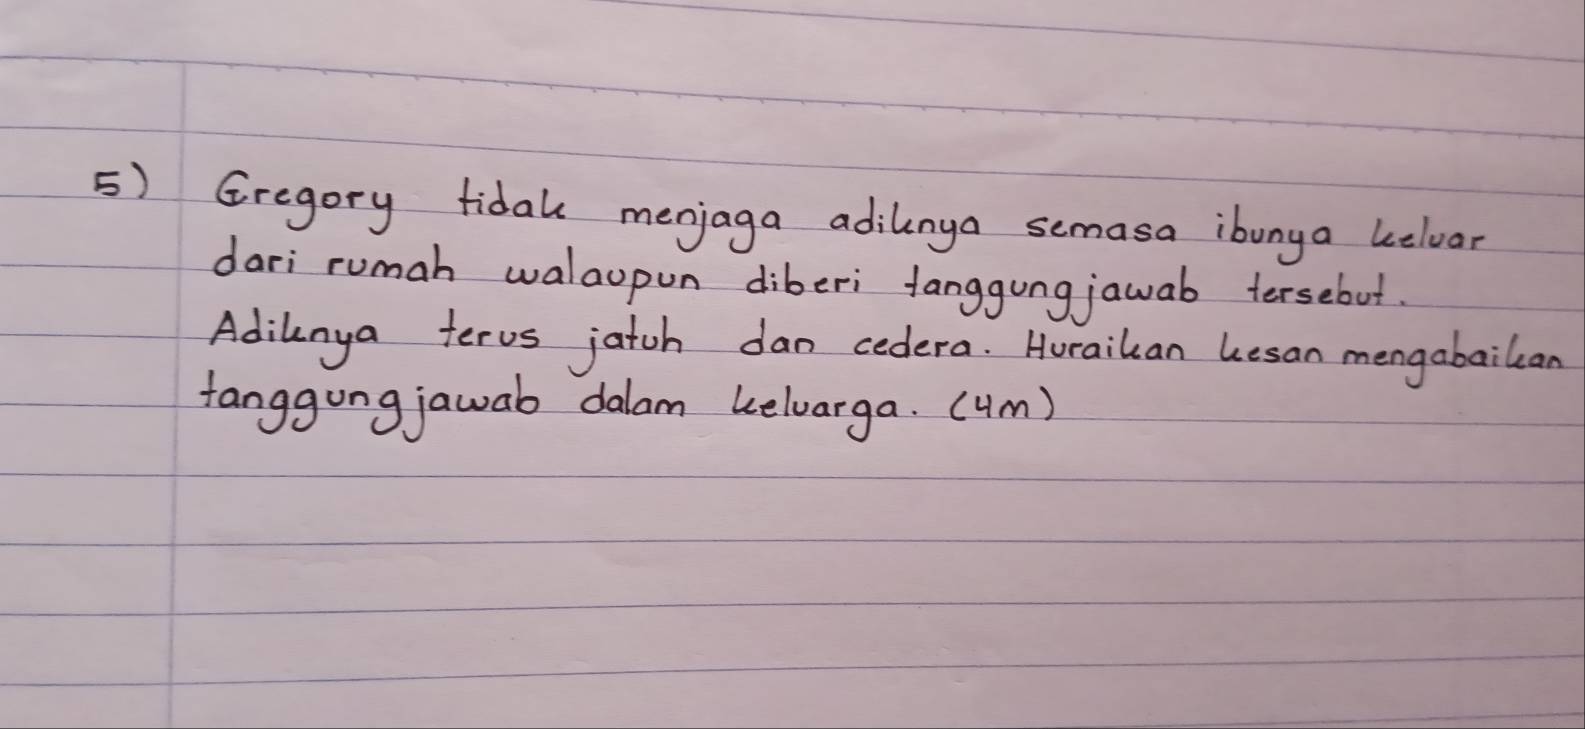 5) Gregory tidak menjaga adiknya semasa ibunya keluar
dari rumah walaupun diberi tanggungjawab tersebut.
Adiknya terus jatuh dan cedera. Huraikan kesan mengabaikan
tanggungjawab dalam keluarga. (4m)